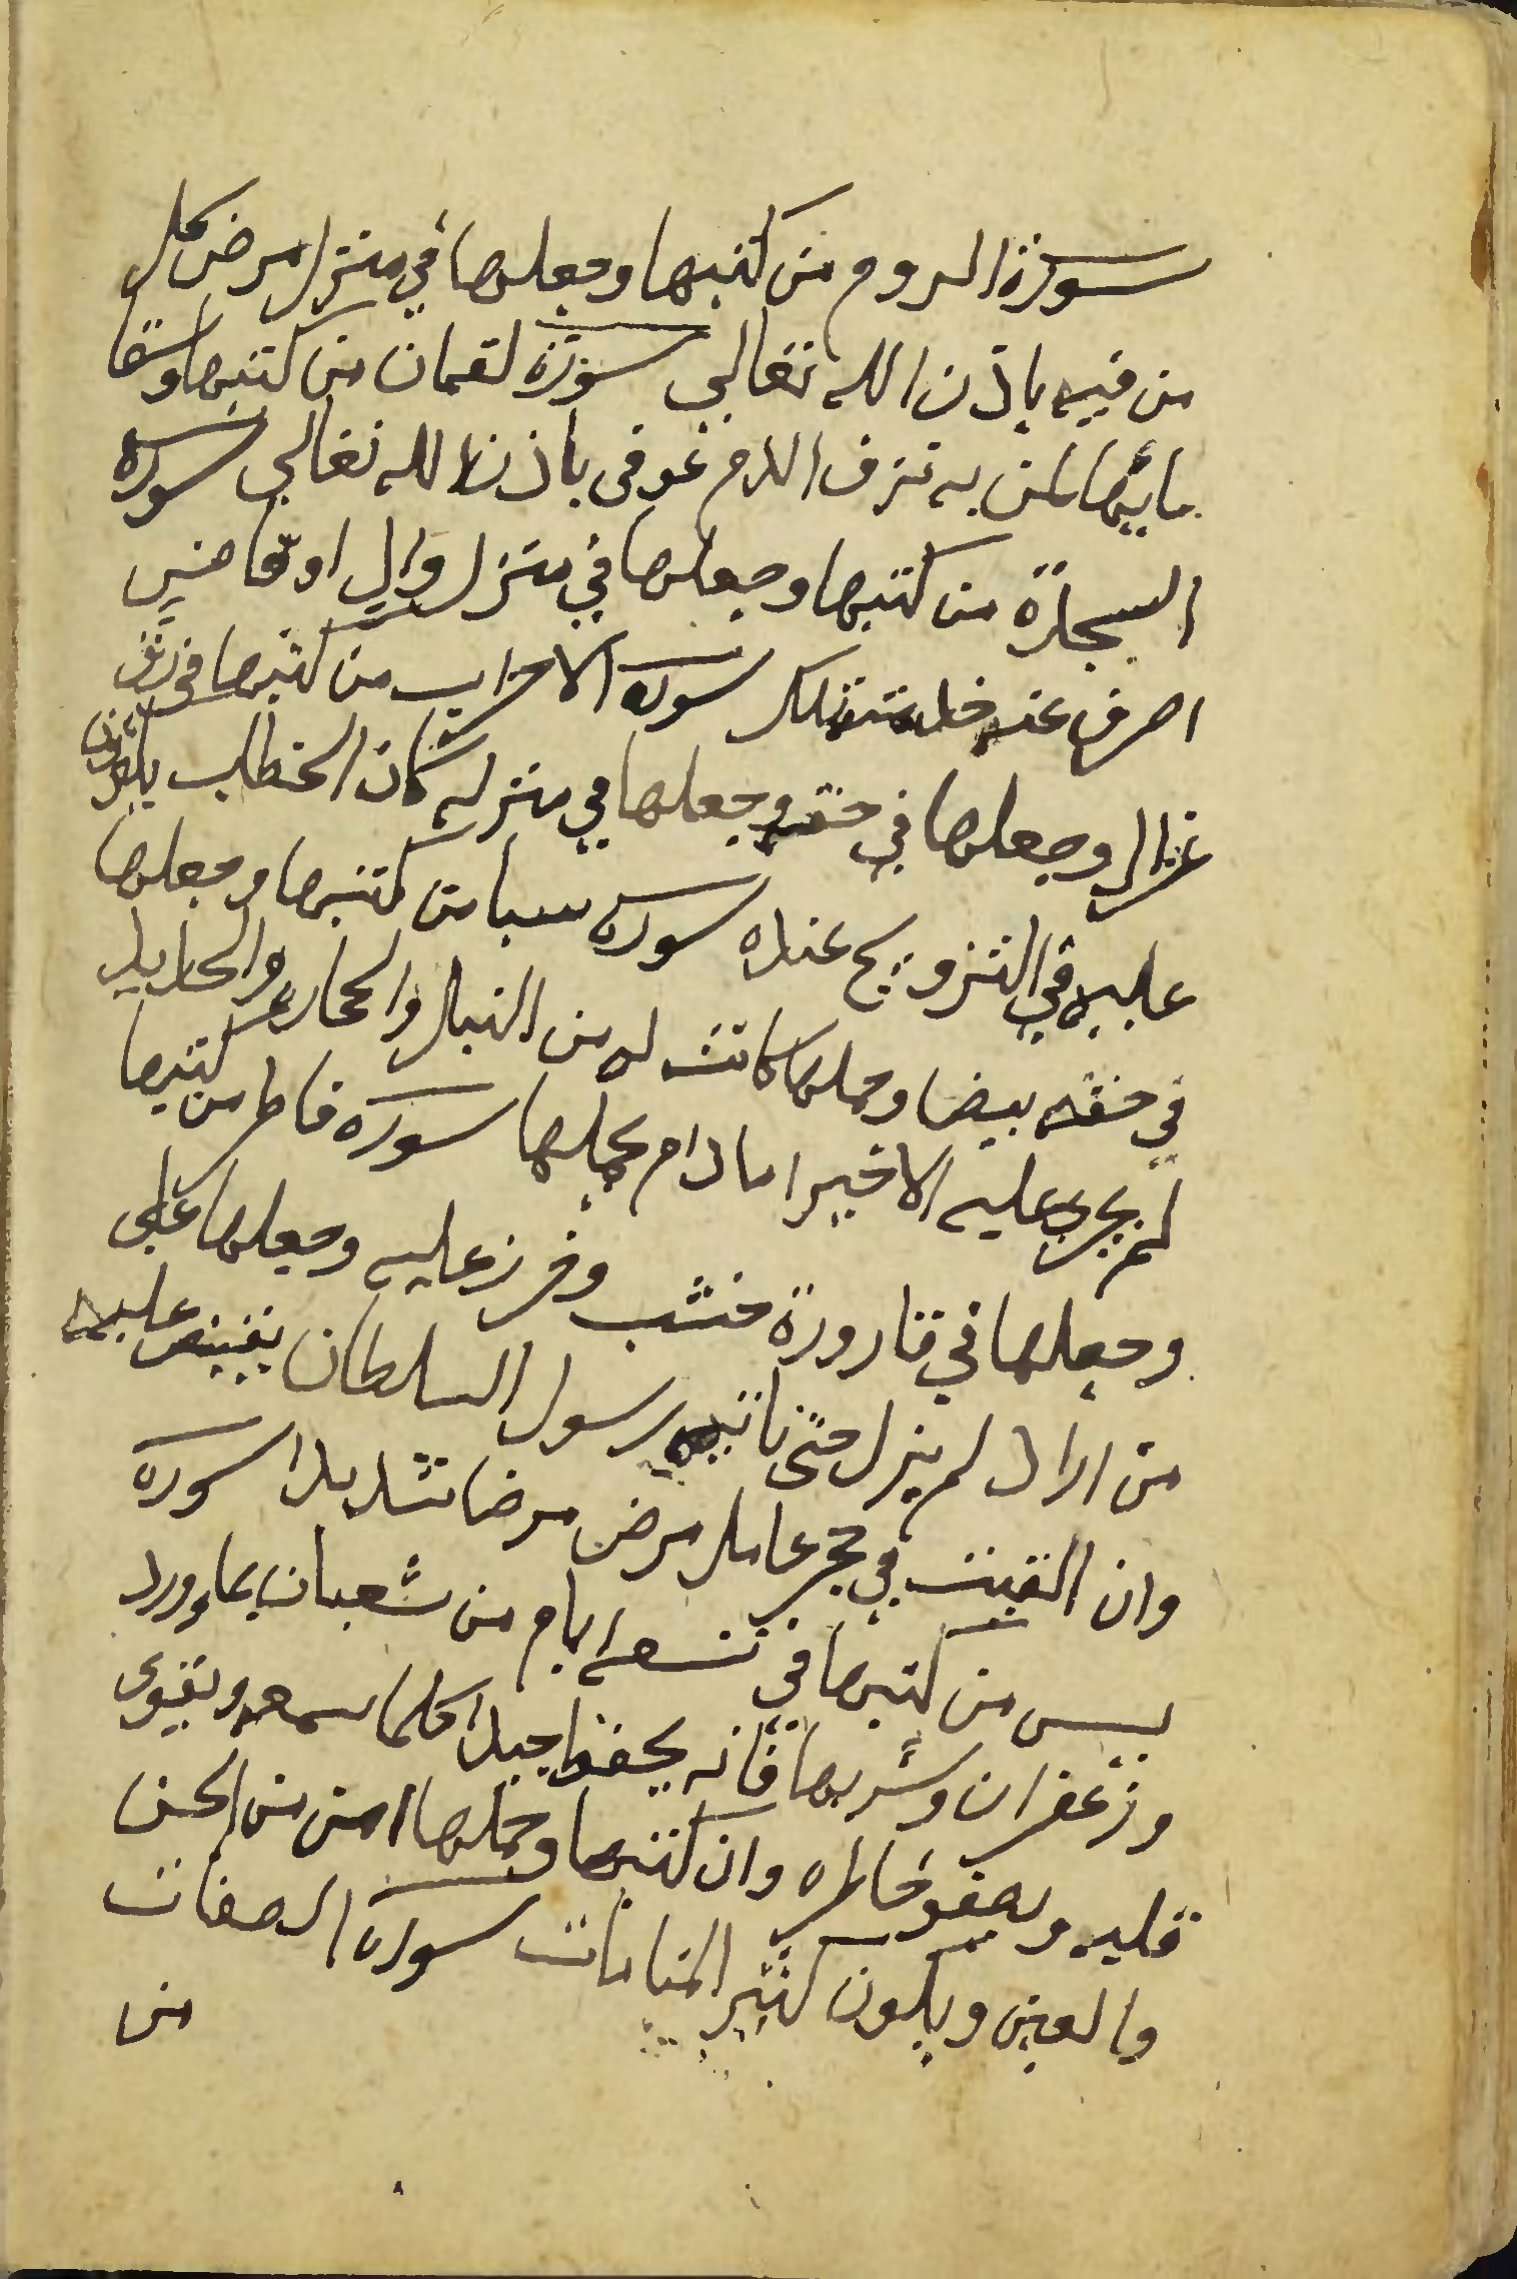 سورة الروم من كتبها وجعلها في منزل مرض كل
من فيه باذن الله تعالى سورة لقمان من كتبها وسقا
مائها لمن به نزف الدم عوفى باذن الله تعالى سورة
السجدة من كتبها وجعلها في منزل وال او قاض
اصرف عنه سورة الاحزاب من كتبها في رق
غزال وجعلها في حقه وجعلها في منزله كان الخطاب يلحون
عليه في التزويج عنده سورة سبا من كتبها وجعلها
في خقه بيضا وحملها كانت له من النبال والحجاره والحديد
لم يجرى عليه الا خيرا ما دام يحملها سورة فاطر من كتبها
وجعلها في قارورة خشب وخرز عليه وجعلها على
من اراد لم يزل حتى ناتيه رسول السلطان يقبض عليه
وان القيت في حجر عامل مرض مرضا شديدا سورة
يس من كتبها في تسعه ايام من شعبان بماء ورد
وزعفران وشربها فانه يحفظ جيدا كلما سمعه ويقوى
قلبه ويصفو خاطره وان كتبها وحملها امن من الجن
والعين ويكون كثير المنامات سورة الصفات
من